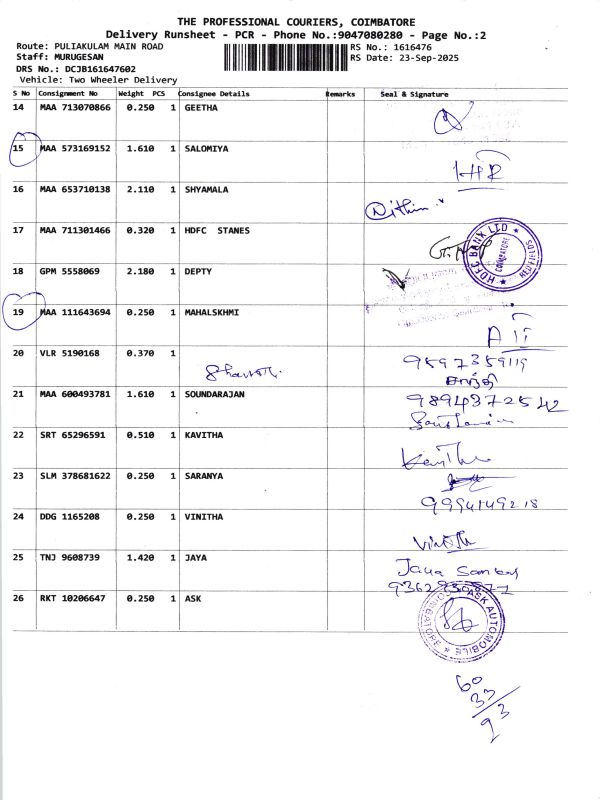 THE PROFESSIONAL COURIERS, COIMBATORE
Delivery Runsheet - PCR - Phone No.:9047080280 - Page No.:2
Route: PULIAKULAM MAIN ROAD RS No.: 1616476
Staff: MURUGESAN RS Date: 23-Sep-2025
DRS No.: DCJB161647602
Vehicle: Two Wheeler Delivery
S No Consignment No Weight PCS Consignee Details Remarks Seal & Signature
14 MAA 713070866 0.250 1 GEETHA
15 MAA 573169152 1.610 1 SALOMIYA
16 MAA 653710138 2.110 1 SHYAMALA Nithin
17 MAA 711301466 0.320 1 HDFC STANES HDFC BANK LTD COIMBATORE
18 GPM 5558069 2.180 1 DEPTY
19 MAA 111643694 0.250 1 MAHALSKHMI
20 VLR 5190168 0.370 1 9597359119
21 MAA 600493781 1.610 1 SOUNDARAJAN 9894372542
22 SRT 65296591 0.510 1 KAVITHA Kavitha
23 SLM 378681622 0.250 1 SARANYA 9994149218
24 DDG 1165208 0.250 1 VINITHA Vinitha
25 TNJ 9608739 1.420 1 JAYA Jaya
26 RKT 10206647 0.250 1 ASK ASK AUTOMOBILE COIMBATORE
60
33
93